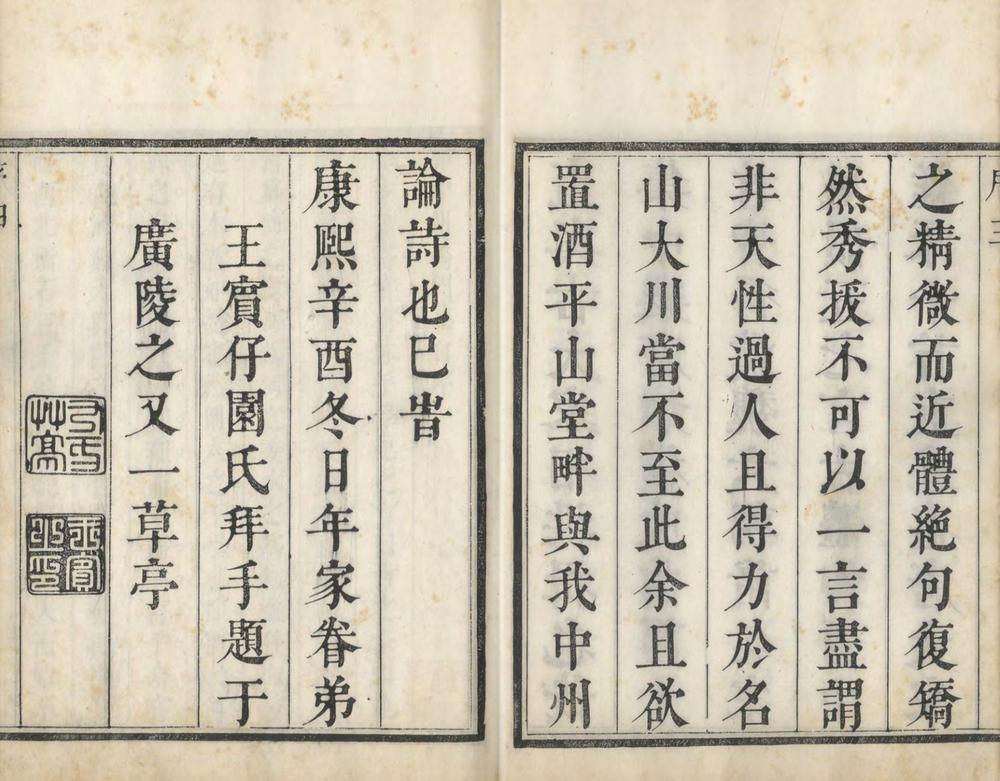 之精微而近體絶句復矯
然秀拔不可以一言盡謂
非天性過人且得力於名
山大川當不至此余且欲
置酒平山堂畔與我中州
論詩也已旹
康熙辛酉冬日年家眷弟
王賔仔園氏拜手題于
廣陵之又一草亭
王賔之印